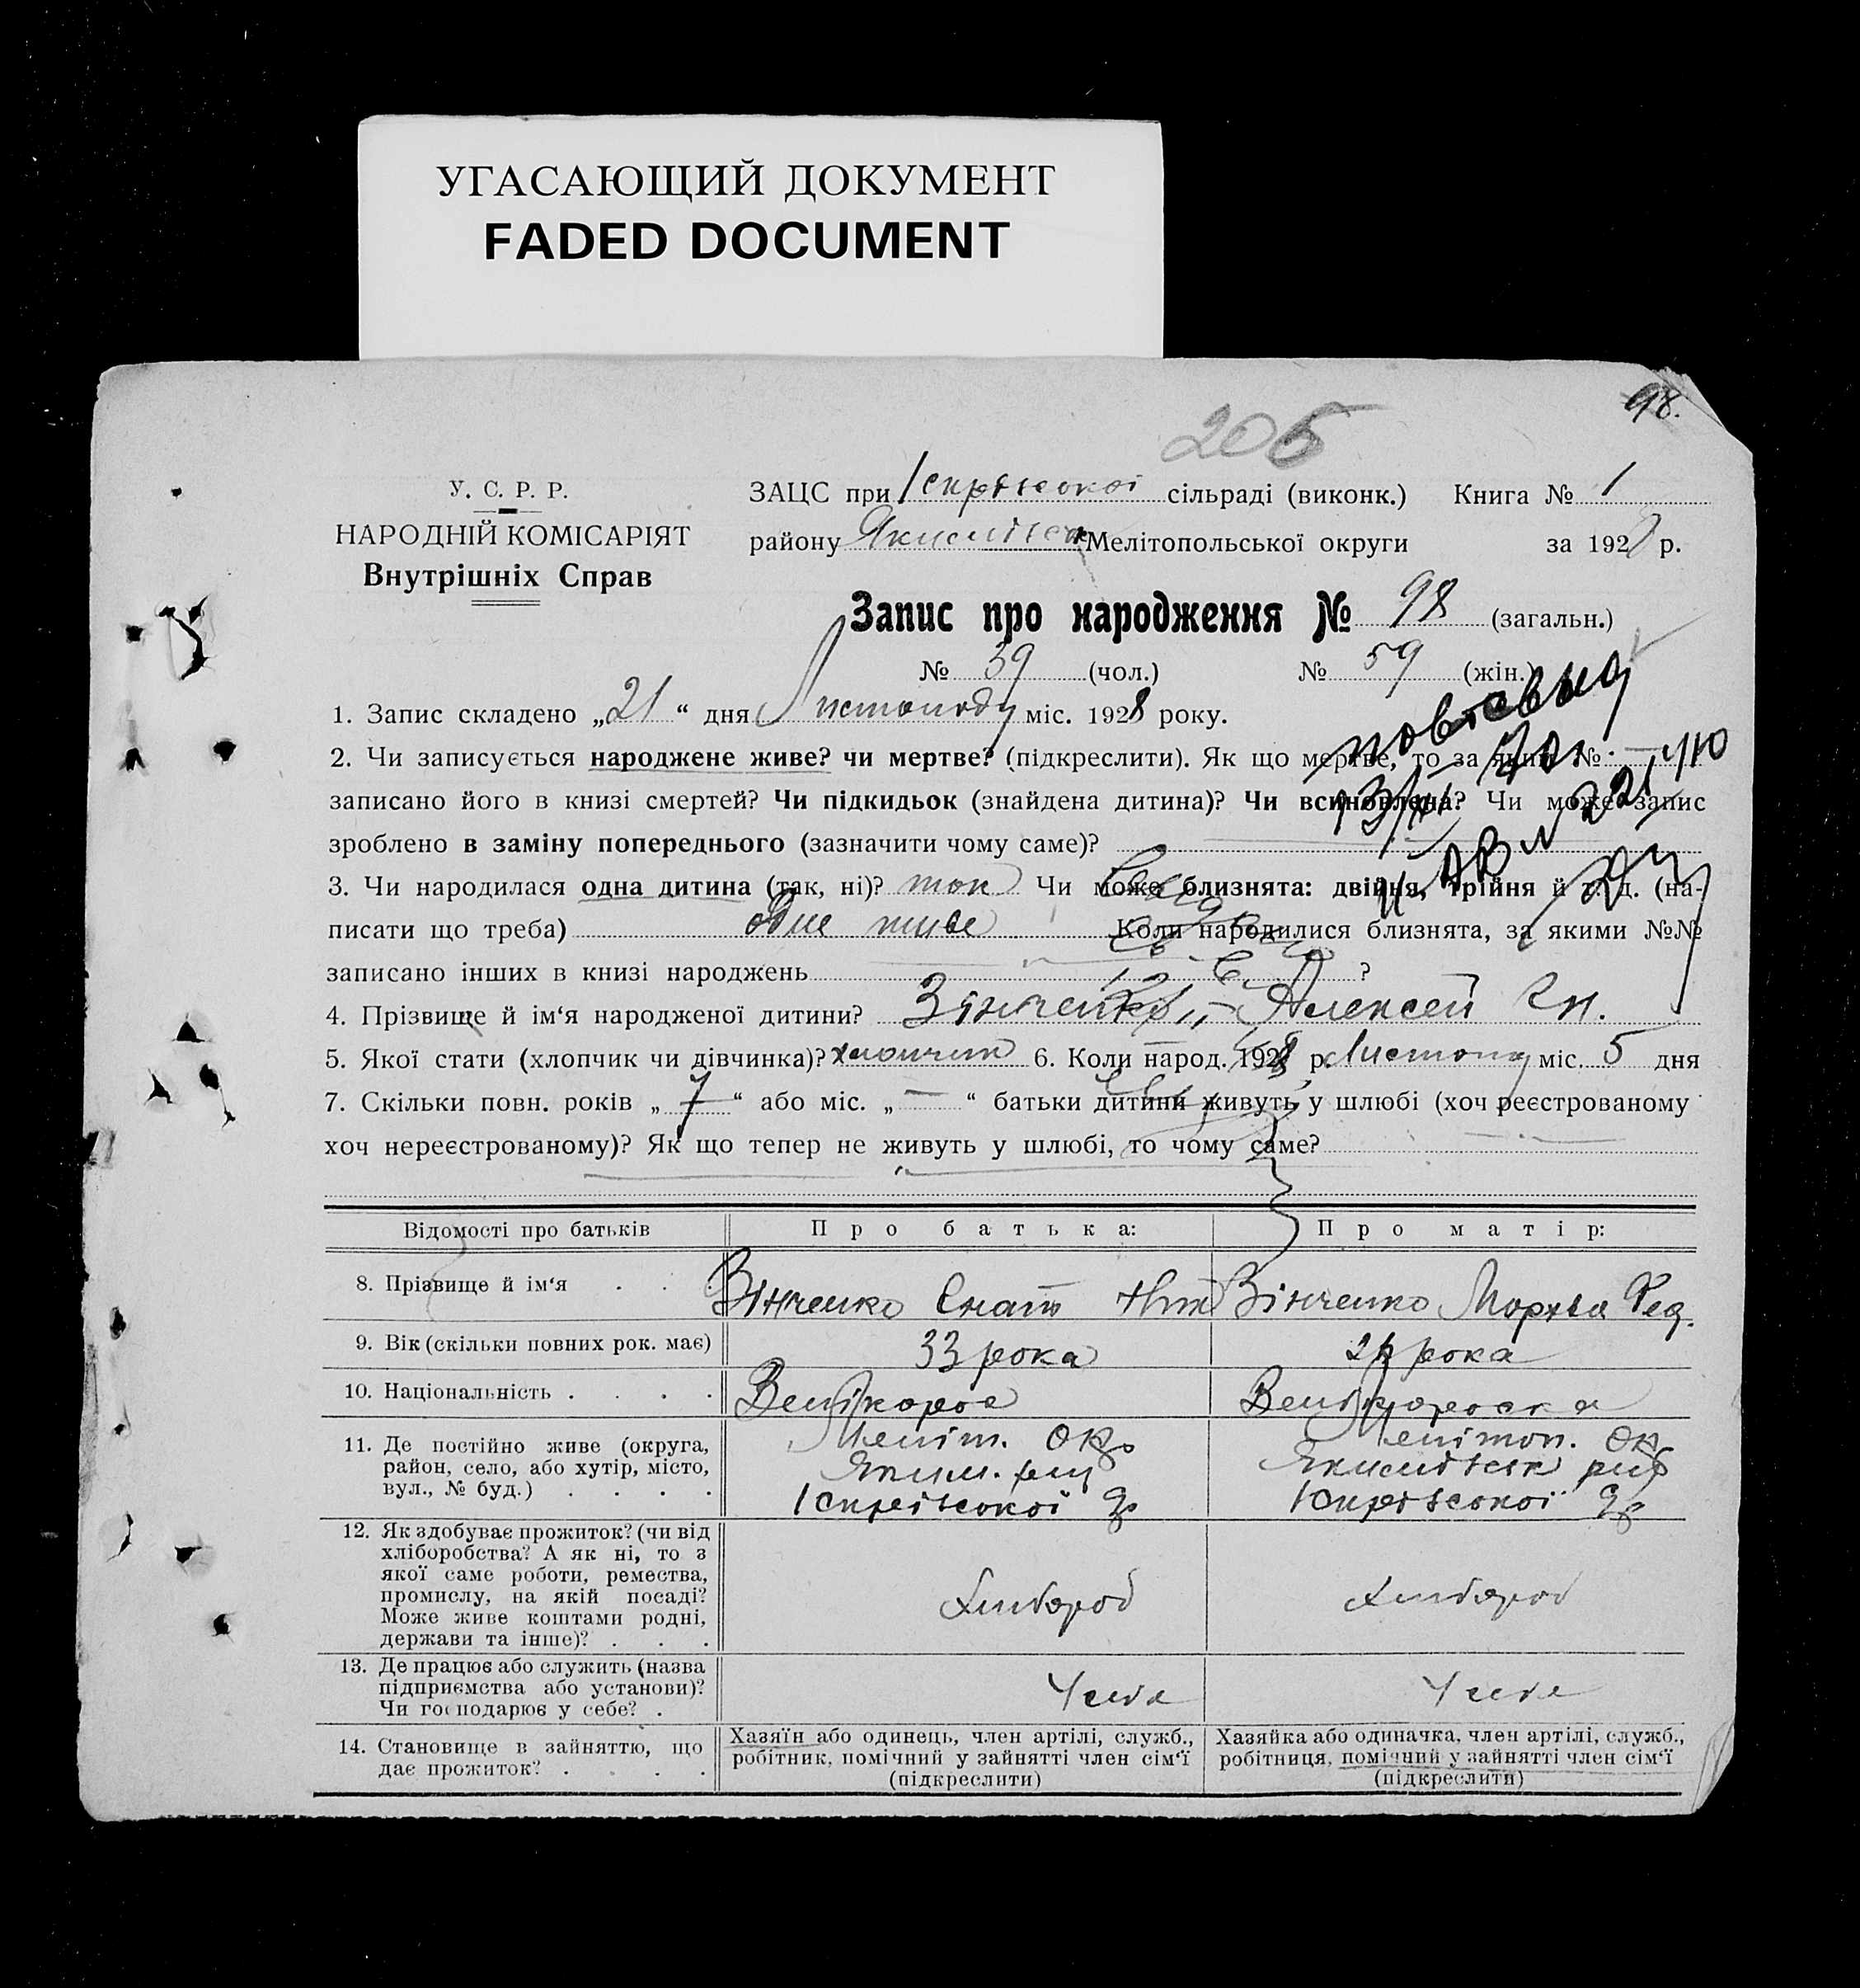 УГАСАЮЩИЙ ДОКУМЕНТ
FADED DOCUMENT
98.
205
У. С. Р. Р.
НАРОДНІЙ КОМІСАРІЯТ
Внутрішніх Справ
ЗАЦС при сільраді (виконк.) Книга № 1
району Мелітопольської округи за 1928 р.
Запис про народження № 98 (загальн.)
№ 39 (чол.) № 59 (жін.)
1. Запис складено „21“ дня Листопаду міс. 1928 року.
2. Чи записується народжене живе? чи мертве? (підкреслити). Як що мертве, то за яким №
записано його в книзі смертей? Чи підкидьок (знайдена дитина)? Чи всиновлена? Чи може запис
зроблено в заміну попереднього (зазначити чому саме)?
3. Чи народилася одна дитина (так, ні)? так Чи може близнята: двійня, трійня й т. д. (на-
писати що треба) одне живе Коли народилися близнята, за якими №№
записано інших в книзі народжень ?
4. Прізвище й ім‘я народженої дитини? Зінченко Алексей Гн.
5. Якої стати (хлопчик чи дівчинка)? хлопчик 6. Коли народ. 1928 р. Листопад міс. 5 дня
7. Скільки повн. років „7“ або міс. „—“ батьки дитини живуть у шлюбі (хоч реєстрованому
хоч нереєстрованому)? Як що тепер не живуть у шлюбі, то чому саме?
Відомості про батьків Про батька: Про матір:
8. Прізвище й ім‘я . . . Зінченко Гнат Зінченко Фед.
9. Вік (скільки повних рок. має) 33 рока рока
10. Національність . . . . Велікорос Велікороска
11. Де постійно живе (округа,
район, село, або хутір, місто,
вул., № буд.) . . . .
Меліт. окр.
Яким. рай
Мелітоп. Ок
12. Як здобуває прожиток? (чи від
хліборобства? А як ні, то з
якої саме роботи, ремества,
промислу, на якій посаді?
Може живе коштами родні,
держави та інше)? . . .
Хлібороб Хлібороб
13. Де працює або служить (назва
підприємства або установи)?
Чи господарює у себе? .
У себе У себе
14. Становище в зайняттю, що
дає прожиток? . . . .
Хазяїн або одинець, член артілі, служб.,
робітник, помічний у зайнятті член сім‘ї
(підкреслити)
Хазяйка або одиначка, член артілі, служб.,
робітниця, помічний у зайнятті член сім‘ї
(підкреслити)